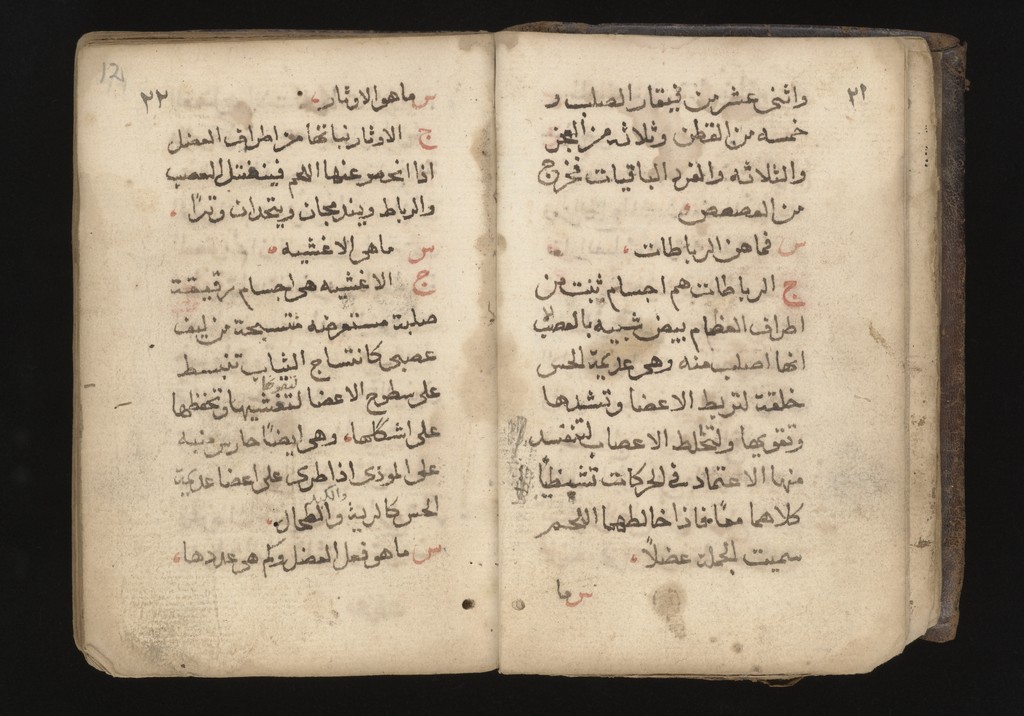 ٣١
واثنى عشر من فيقار الصلب و
خمسه من القطن وثلاثه من العجز
والثلاثه والفرد الباقيات فخرج
من العصعص
س فماهن الرباطات
ج الرباطات هم اجسام ثبنت من
اطراف العظام بيض شبيه بالعصب
انها اصلب منه وهى عديمة الحس
خلقة لتربط الاعضا وتشدها
وتقويها ولتخلط الاعصاب
منها الاعتماد فى الحركات تشيظيا
كلاهما معًا فاذا خالطهما اللحم
سميت الجملة عضلًا
س ما
12
٣٢
س ما هو الاوتار
ج الاوتار نباتها من اطراف العضل
اذا انحصر عنها اللحم فينفتل العصب
والرباط ويندمجان ويتحدان وترًا
س ماهى الاغشيه
ج الاغشيه هى اجسام رقيقة
صلبة مستعرضه منتسجة من ليف
عصبى كانتساج الثياب تنبسط
على سطوح الاعضا لتغشيها وتحفظها
على اشكالها وهى ايضًا حارس منبه
على الموذى اذا طرى على اعضا عديمة
الحس كالرية والكبد والطحال
س ما هو فعل العضل وكم هى عددها